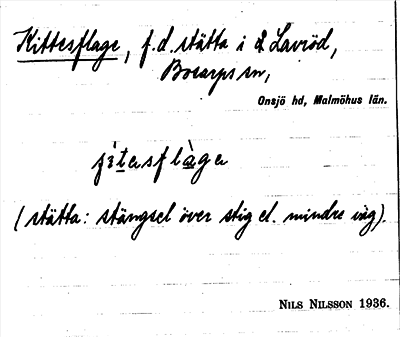 Kittesflage, f.d. stätta i 2 Lavröd,
Bosarps sn,
Onsjö hd, Malmöhus län.
(stätta: stängsel över stig el. mindre väg).
NILS NILSSON 1936.